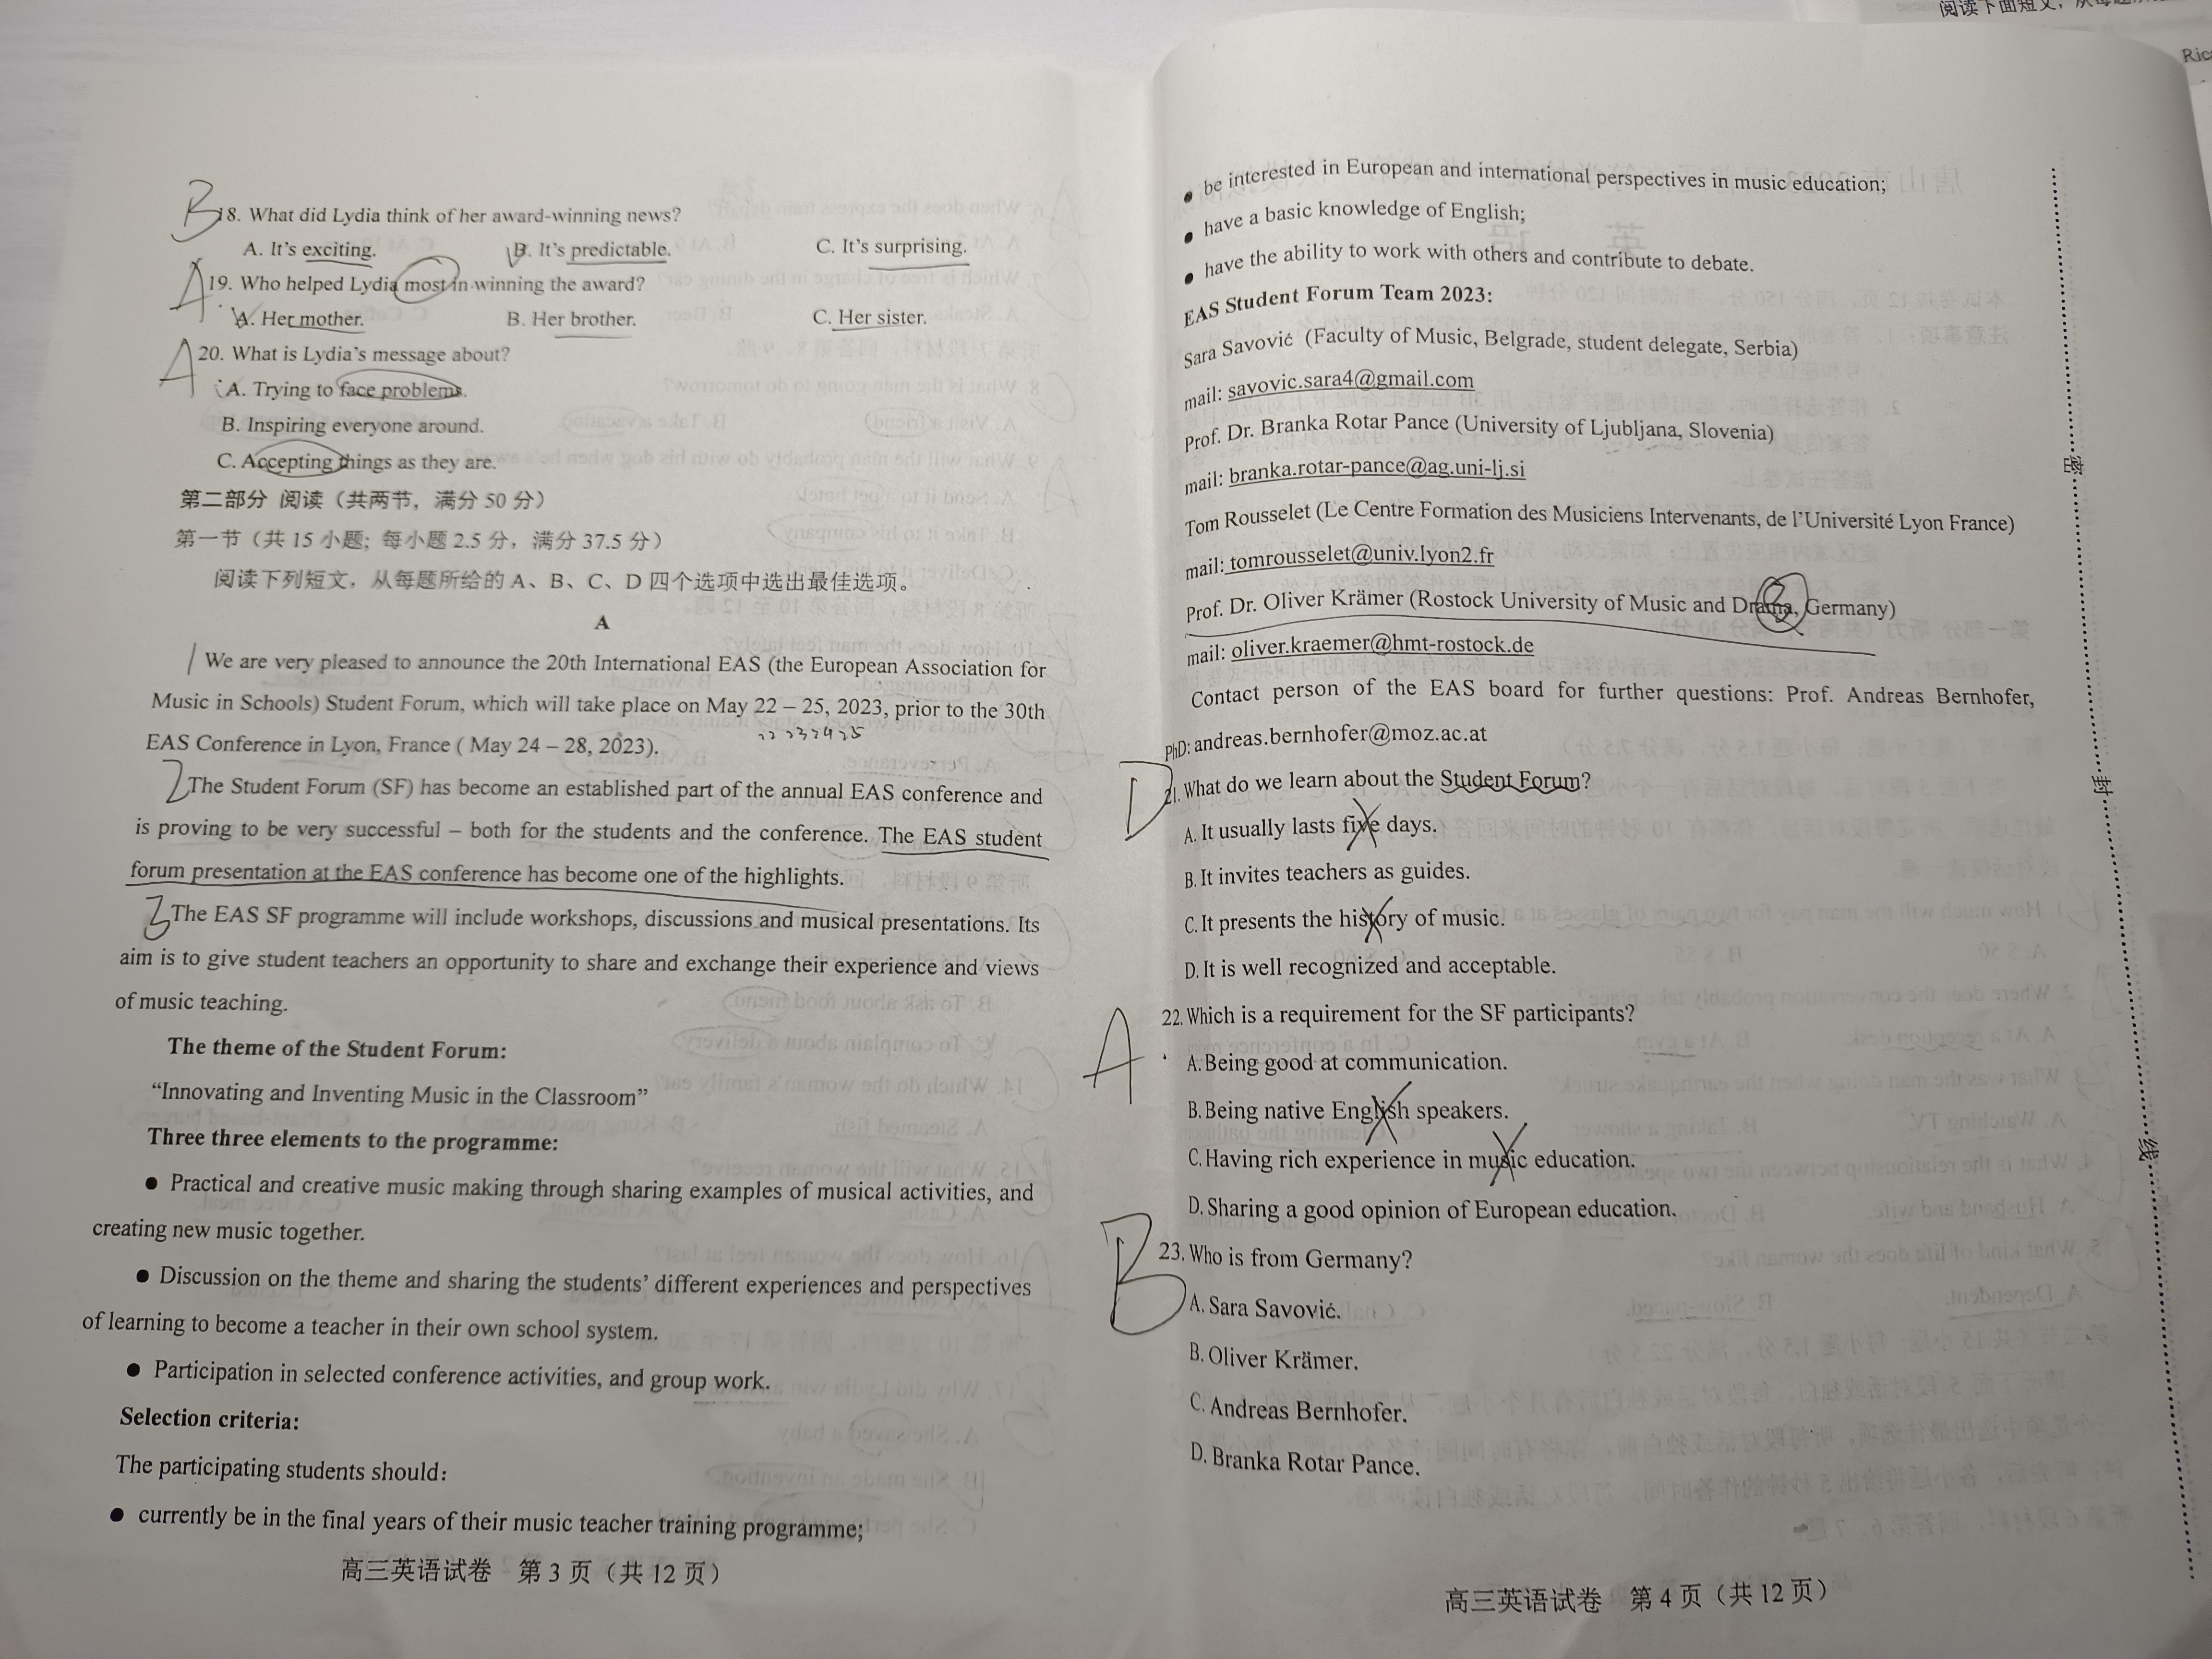 B 18. What did Lydia think of her award-winning news?
A. It's exciting. B. It's predictable. C. It's surprising.
A 19. Who helped Lydia most in winning the award?
A. Her mother. B. Her brother. C. Her sister.
A 20. What is Lydia's message about?
A. Trying to face problems.
B. Inspiring everyone around.
C. Accepting things as they are.
第二部分 阅读（共两节，满分 50 分）
第一节（共 15 小题; 每小题 2.5 分，满分 37.5 分）
阅读下列短文，从每题所给的 A、B、C、D 四个选项中选出最佳选项。
A
1 We are very pleased to announce the 20th International EAS (the European Association for
Music in Schools) Student Forum, which will take place on May 22 – 25, 2023, prior to the 30th
22 23 24 25
EAS Conference in Lyon, France ( May 24 – 28, 2023).
2 The Student Forum (SF) has become an established part of the annual EAS conference and
is proving to be very successful – both for the students and the conference. The EAS student
forum presentation at the EAS conference has become one of the highlights.
3 The EAS SF programme will include workshops, discussions and musical presentations. Its
aim is to give student teachers an opportunity to share and exchange their experience and views
of music teaching.
The theme of the Student Forum:
“Innovating and Inventing Music in the Classroom”
Three three elements to the programme:
● Practical and creative music making through sharing examples of musical activities, and
creating new music together.
● Discussion on the theme and sharing the students' different experiences and perspectives
of learning to become a teacher in their own school system.
● Participation in selected conference activities, and group work.
Selection criteria:
The participating students should:
● currently be in the final years of their music teacher training programme;
高三英语试卷 第 3 页（共 12 页）
阅读下面短文，从每题
Ric
● be interested in European and international perspectives in music education;
● have a basic knowledge of English;
● have the ability to work with others and contribute to debate.
EAS Student Forum Team 2023:
Sara Savović (Faculty of Music, Belgrade, student delegate, Serbia)
mail: savovic.sara4@gmail.com
Prof. Dr. Branka Rotar Pance (University of Ljubljana, Slovenia)
mail: branka.rotar-pance@ag.uni-lj.si
Tom Rousselet (Le Centre Formation des Musiciens Intervenants, de l'Université Lyon France)
mail: tomrousselet@univ.lyon2.fr
Prof. Dr. Oliver Krämer (Rostock University of Music and Drama, Germany)
mail: oliver.kraemer@hmt-rostock.de
Contact person of the EAS board for further questions: Prof. Andreas Bernhofer,
PhD: andreas.bernhofer@moz.ac.at
D 21. What do we learn about the Student Forum?
A. It usually lasts five days.
B. It invites teachers as guides.
C. It presents the history of music.
D. It is well recognized and acceptable.
A 22. Which is a requirement for the SF participants?
A. Being good at communication.
B. Being native English speakers.
C. Having rich experience in music education.
D. Sharing a good opinion of European education.
B 23. Who is from Germany?
A. Sara Savović.
B. Oliver Krämer.
C. Andreas Bernhofer.
D. Branka Rotar Pance.
高三英语试卷 第 4 页（共 12 页）
密
封
线